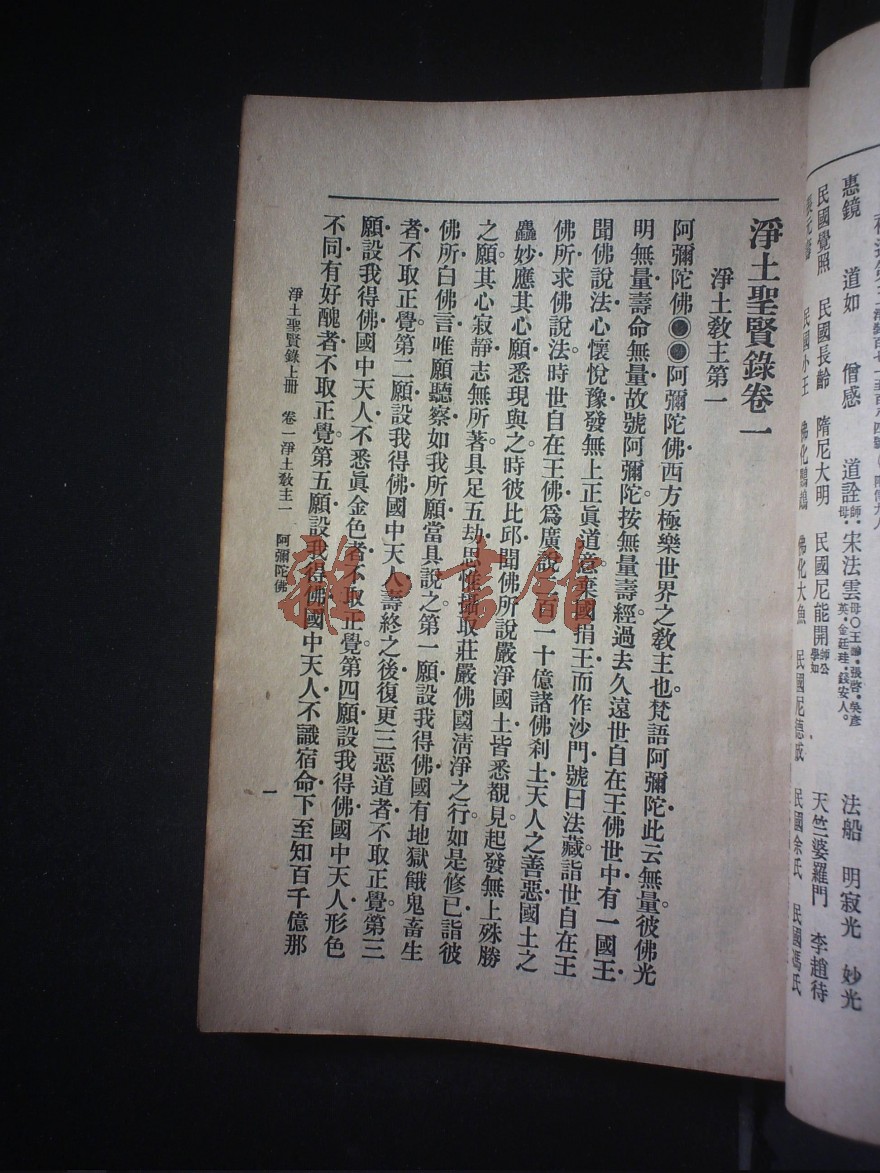 惠鏡　道如　僧感　道詮師．母．宋法雲母〇王謝．張啓．吳彥英．金廷珪．錢安人。　法船　明寂光　妙光
民國覺照　民國長齡　隋尼大明　民國尼能開師公學如　天竺婆羅門　李趙待
民國余氏　民國馮氏
淨土聖賢錄卷一
淨土敎主第一
阿彌陀佛●●阿彌陀佛．西方極樂世界之敎主也。梵語阿彌陀．此云無量。彼佛光
明無量．壽命無量．故號阿彌陀。按無量壽經．過去久遠．世自在王佛世中．有一國王．
聞佛說法．心懷悅豫．發無上正眞道意．棄國捐王．而作沙門．號曰法藏。詣世自在王
佛所．求佛說法．時世自在王佛．爲廣說二百一十億諸佛刹土．天人之善惡．國土之
麤妙．應其心願．悉現與之。時彼比邱．聞佛所說嚴淨國土．皆悉覩見。起發無上殊勝
之願．其心寂靜．志無所著．具足五劫．思惟攝取莊嚴佛國淸淨之行。如是修已．詣彼
佛所．白佛言．唯願聽察．如我所願．當具說之。第一願．設我得佛．國有地獄餓鬼畜生
者．不取正覺。第二願．設我得佛．國中天人．壽終之後．復更三惡道者．不取正覺。第三
願．設我得佛．國中天人．不悉眞金色者．不取正覺。第四願．設我得佛．國中天人．形色
不同．有好醜者．不取正覺。第五願．設我得佛．國中天人．不識宿命．下至知百千億那
淨土聖賢錄上册　卷一淨土敎主一　阿彌陀佛
一
書館